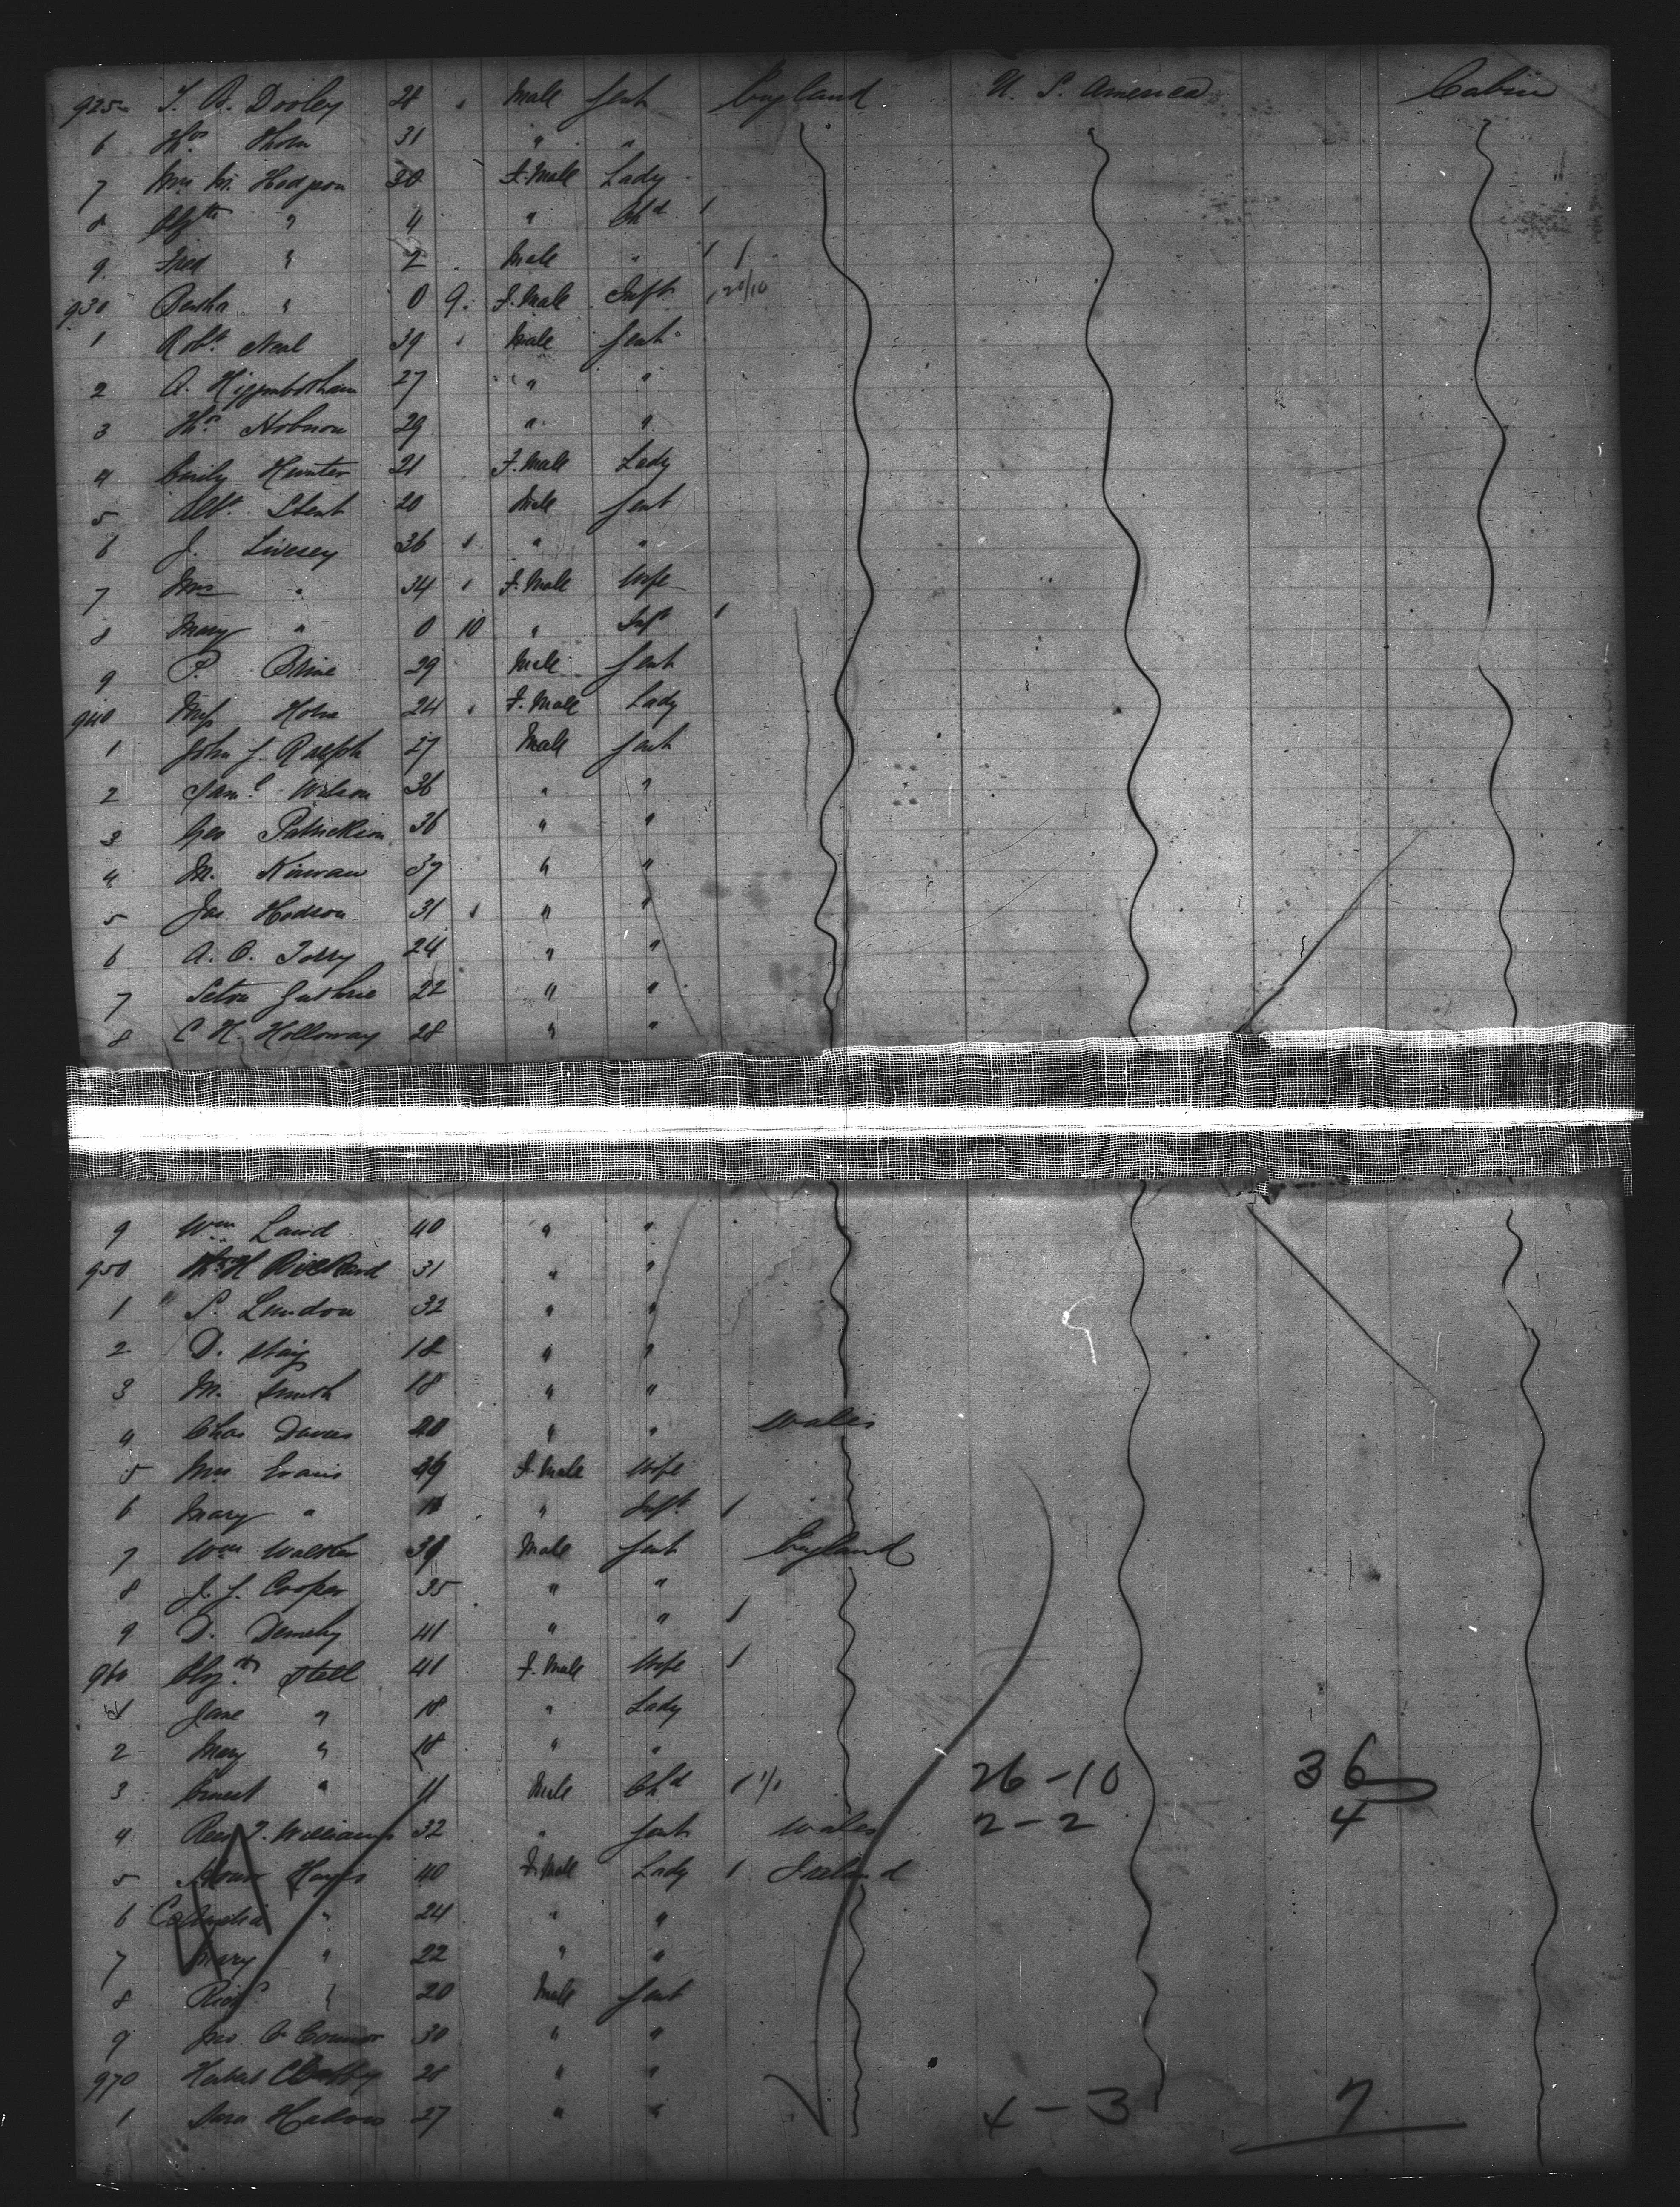 925 T. B. Dooley 28 Male Gent England U. S. America Cabin
6 Thos Thom 31 " "
7 Mrs M. Hodgson 30 F. Male Lady
8 Elizth " 4 " Chd 1
9 Fred " 2 Male " 1 1
930 Bertha " 0 9 F. Male Inft
1 Robt Neal 39 Male Gent
2 A. Higginbotham 27 " "
3 Thos Hobson 29 " "
4 Emily Hunter 21 F. Male Lady
5 Albt Stent 20 Male Gent
6 J. Livesey 36 " "
7 Mrs " 34 F. Male Wife
8 Mary " 0 10 " Inft 1
9 P. Brine 29 Male Gent
940 Miss 24 F. Male Lady
1 John J. Ralph 27 Male Gent
2 Saml Wilson 36 " "
3 Geo Patrickson 36 " "
4 M. Kirwan 37 " "
5 Jas Hodson 31 " "
6 A. C. Torry 24 " "
7 Seton Guthrie 22 " "
8 C. H. Holloway 28 " "
9 Wm Laird 40 " "
950 H Rickard 31 " "
1 S. Lundon 32 " "
2 D. Haig 18 " "
3 M. Smith 18 " "
4 Chas Davies 20 " " Wales
5 Mrs Evans F. Male Wife
6 Mary " " Inft 1
7 Wm Walker Male Gent England
8 J. J. Cooper 35 " "
9 D. 41 " " 1
960 Elizth Stell 41 F. Male Wife 1
1 Jane " 18 " Lady
2 Mary " 18 " "
3 Ernest " 11 Male Chd 1 1/1 26 - 10 36
4 T. Williams 32 " Gent Wales 2 - 2 4
5 Hayes 40 F. Male Lady 1 Ireland
6 " 24 " "
7 Mary " 22 " "
8 Richd " 20 Male Gent
9 Jno O'Connor 30 " "
970 Herbert 28 " "
1 27 " " 4 - 3 7